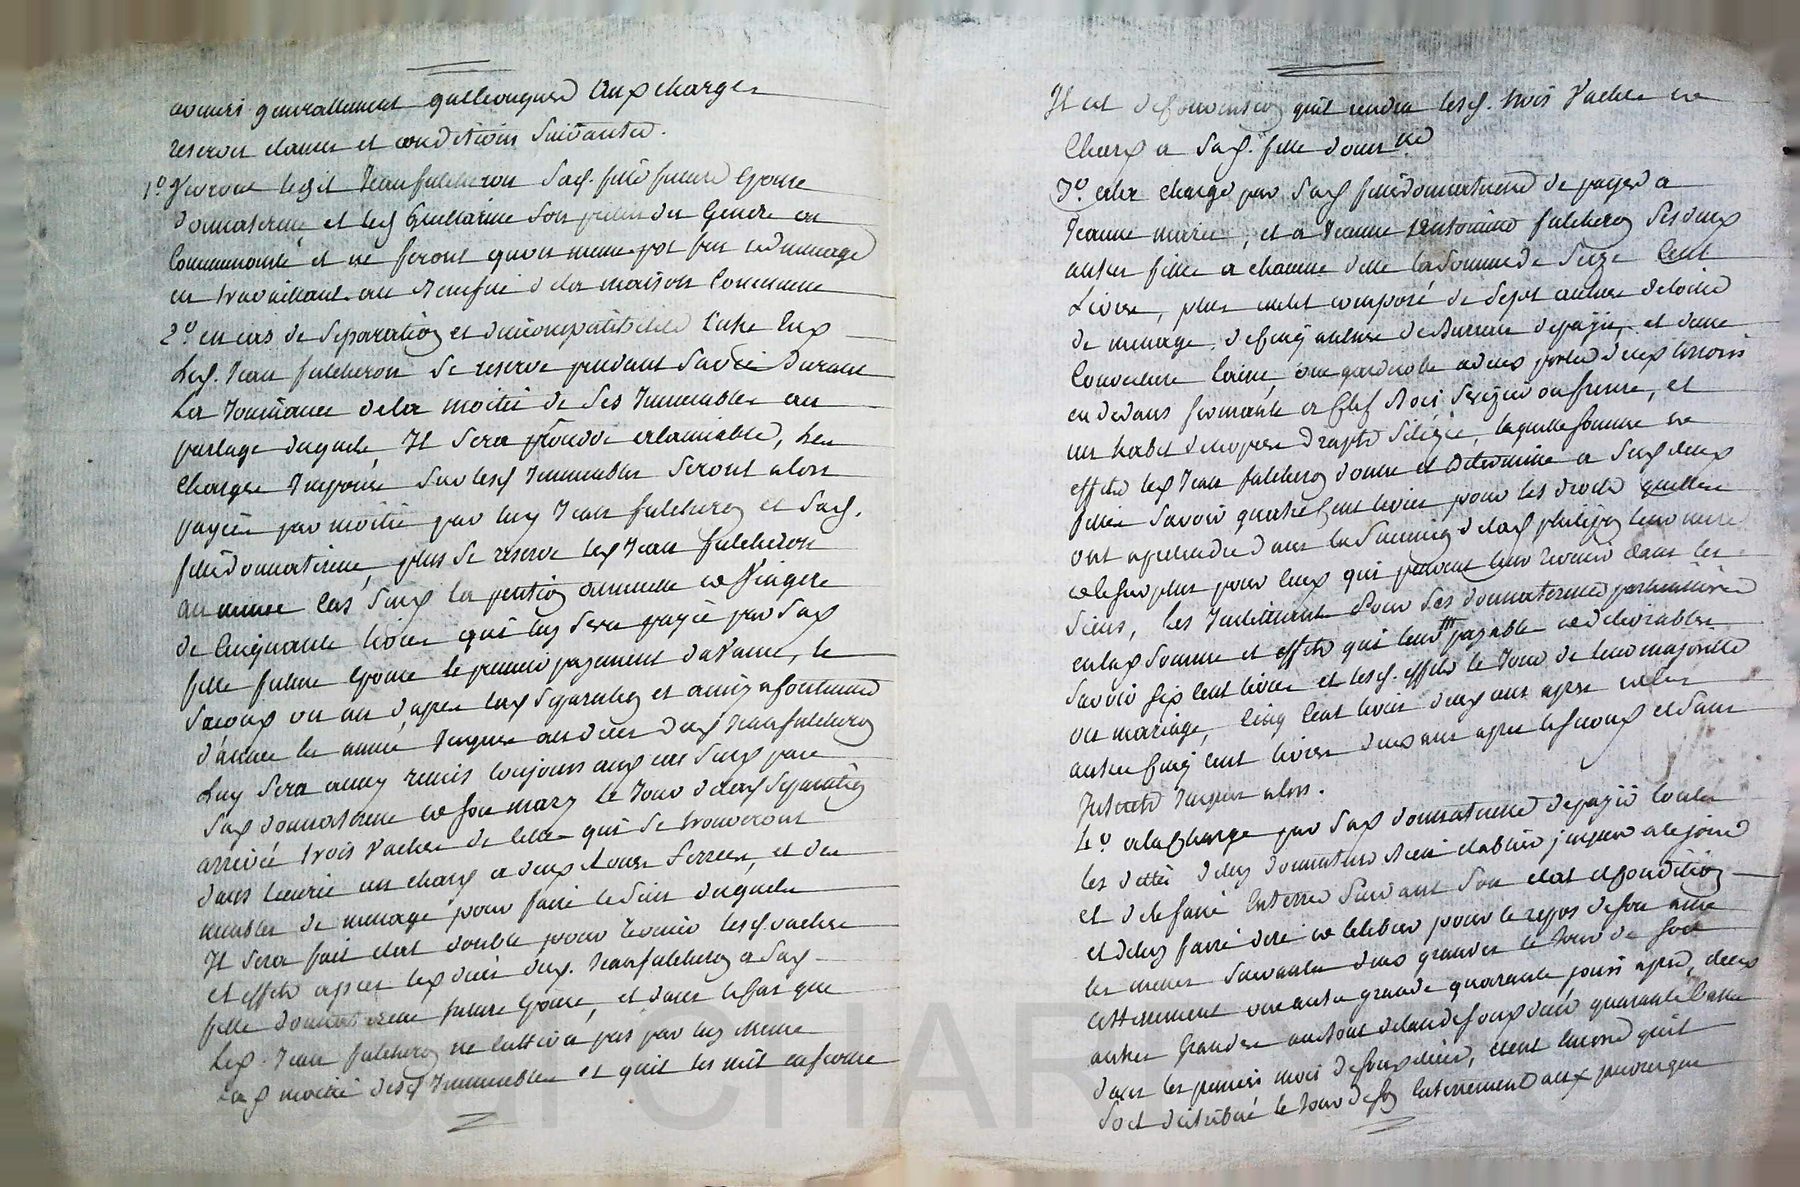 avenir generallement quelconques Aux charges
reserves clauses et conditions Suivantes.
1º Vivront led. Jean fulcheron Sad. fille future Epouse
Donnataire et led. Guillaume Son futur Gendre en
Communauté et ne feront qu'un meme pot feu et menage
en travaillant au Benefice de la maison Commune
2º en cas de Separation et d'incompatibilité Entre Eux
Led. Jean fulcheron Se reserve pendant Sa vie Durant
La Jouissance de la moitié de Ses Immeubles au
partage duquel Il Sera procedé a l'amiable, Les
Charges Imposées Sur lesd. Immeubles Seront alors
payées par moitié par led. Jean fulcheron et Sad.
fille Donnataire, plus Se reserve led. Jean fulcheron
au meme Cas Sus la pention annuelle et Viagere
de Cinquante livres qui luy Sera payée par Sad.
fille future Epouse le premier payement d'avance, le
Second un an d'apres lad. Separation et ainsy a Continuer
d'année en année Jusques au deces dud. Jean fulcheron
Luy Sera aussy remis toujours aux cas Sus par
Sad. donnataire et Son mary le Jour de lad. Separation
arrivée trois Vaches de Celles qui Se trouveront
dans l'ecurie un charg a deux Roues ferrées, et des
meubles de menage pour faire le Sien duquel
Il Sera fait etat double pour revenir lesd. vaches
et effets apres led. deces dud. Jean fulcheron a Sad.
fille Donnataire future Epouse, et dans le Cas que
Led. Jean fulcheron ne cultiva pas par luy meme
Lad. moitié desd. Immeubles et quil les mit en ferme
Il est de Convention quil rendra lesd. trois Vaches et
Charg a Sad. fille donnre
3º a la charge par Sad. fille Donnataire de payer a
Jeanne marie, et a Jeanne Antoinette fulcheron Ses deux
autres filles a chacune d'elle la Somme de Seize Cent
Livres, plus un lit composé de Sept aulnes de toile
de menage, de Cinq aulnes de Bureau de pays, et d'une
Couverture laine, une garderobe a deux portes deux tiroirs
en dedans fermante a Clef Bois Serizier ou fresne, et
un habit de nopces Drapt d'elegie, laquelle Somme et
effets led. Jean fulcheron donne et Determine a Sesd. deux
filles Savoir quatre Cent livres pour les droits quelles
ont a pretendre dans la Succession de lad. philipon leur mere
et le Surplus pour Ceux qui peuvent leur revenir dans les
Siens, les Instituant Pour Ses donnataires particulieres
en lad. Somme et effets qui leur payable et delivrables
Savoir Six Cent livres et lesd. effets le Jour de leur majorité
ou mariage, Cinq Cent livres deux ans apres et les
autres Cinq Cent livres deux ans apres le Second et Sans
Interets Jusques alors.
4º a la Charge par Sad. Donnataire de payer toutes
les dettes de luy donnateur Bien etablies jusques a ce jour
et de le faire Enterrer Suivant Son etat et Condition
et de luy faire dire et celebrer pour le repos de Son ame
les messes Suivantes deux grandes le Jour de Son
Enterrement une autre grande quarante jours apres, deux
autres Grandes au bout de l'an de Sond. deces quarante basses
dans les premiers mois de Sond. deces, veut Encore quil
Soit distribué le Jour de Son Enterrement aux pauvres que